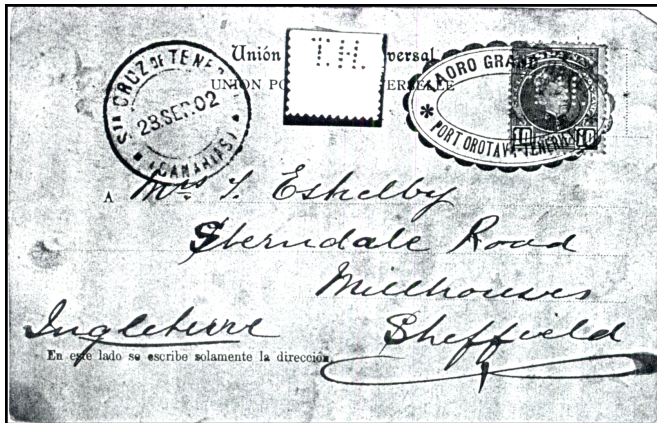 Unión versal
T.H.
UNION PO VERSELLE
STA CRUZ DE TENE
23.SEP.02
(CANARIAS)
TAORO GRAND
PORT OROTAVA TENERI
10 10
A Mrs S. Eshelby
Sterndale Road
Millhouses
Sheffield
Ingleterre
En este lado se escribe solamente la dirección.